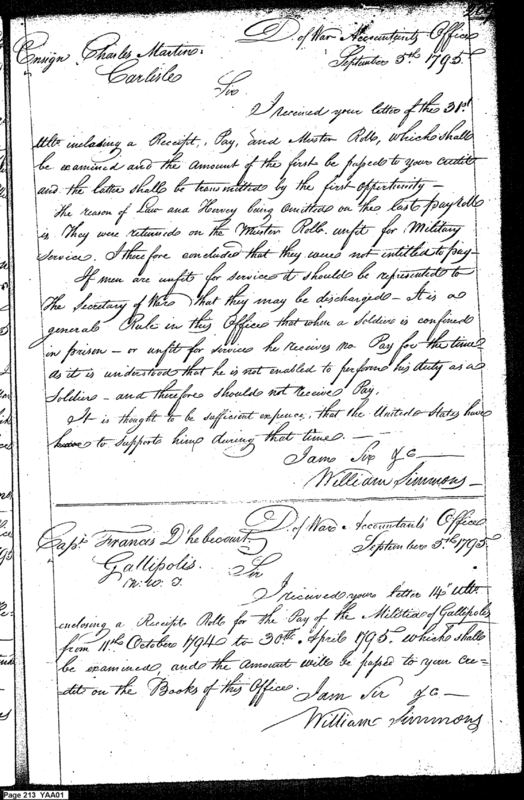 Ensign Charles Martin
Carlisle
D. of War Accountants Office
September 5th 1795
Sir
I received your letter of the 31st
ulto. inclosing a Receipt, Pay, and Muster Rolls, which shall
be examined and the amount of the first be passed to your credit
and the latter shall be transmitted by the first opportunity—
The reason of Law and Hervey being omitted on the last payroll
is, They were returned on the Muster Rolls unfit for Military
service. I therefore concluded that they were not intitled to pay—
If men are unfit for service it should be represented to
the Secretary of War that they may be discharged— It is a
general Rule in this Office that when a Soldier is confined
in prison — or unfit for service he receives no Pay for the time
as it is understood that he is not enabled to perform his duty as a
Soldier — and therefore should not receive Pay.
It is thought to be sufficient expence, that the United States have
have to support him during that time. —
I am Sir &c —
William Simmons —
D. of War Accountants' Office
September 5th 1795
Capt. Francis D'hebecourt
Gallipolis.
N. W. T.
Sir
I received your letter 14th ulto.
enclosing a Receipt Roll for the Pay of the Militia of Gallipolis
from 11th October 1794 to 30th April 1795. which shall
be examined, and the amount will be passed to your cre-
dit on the Books of this Office. I am Sir &c —
William Simmons
Page 213 YAA01